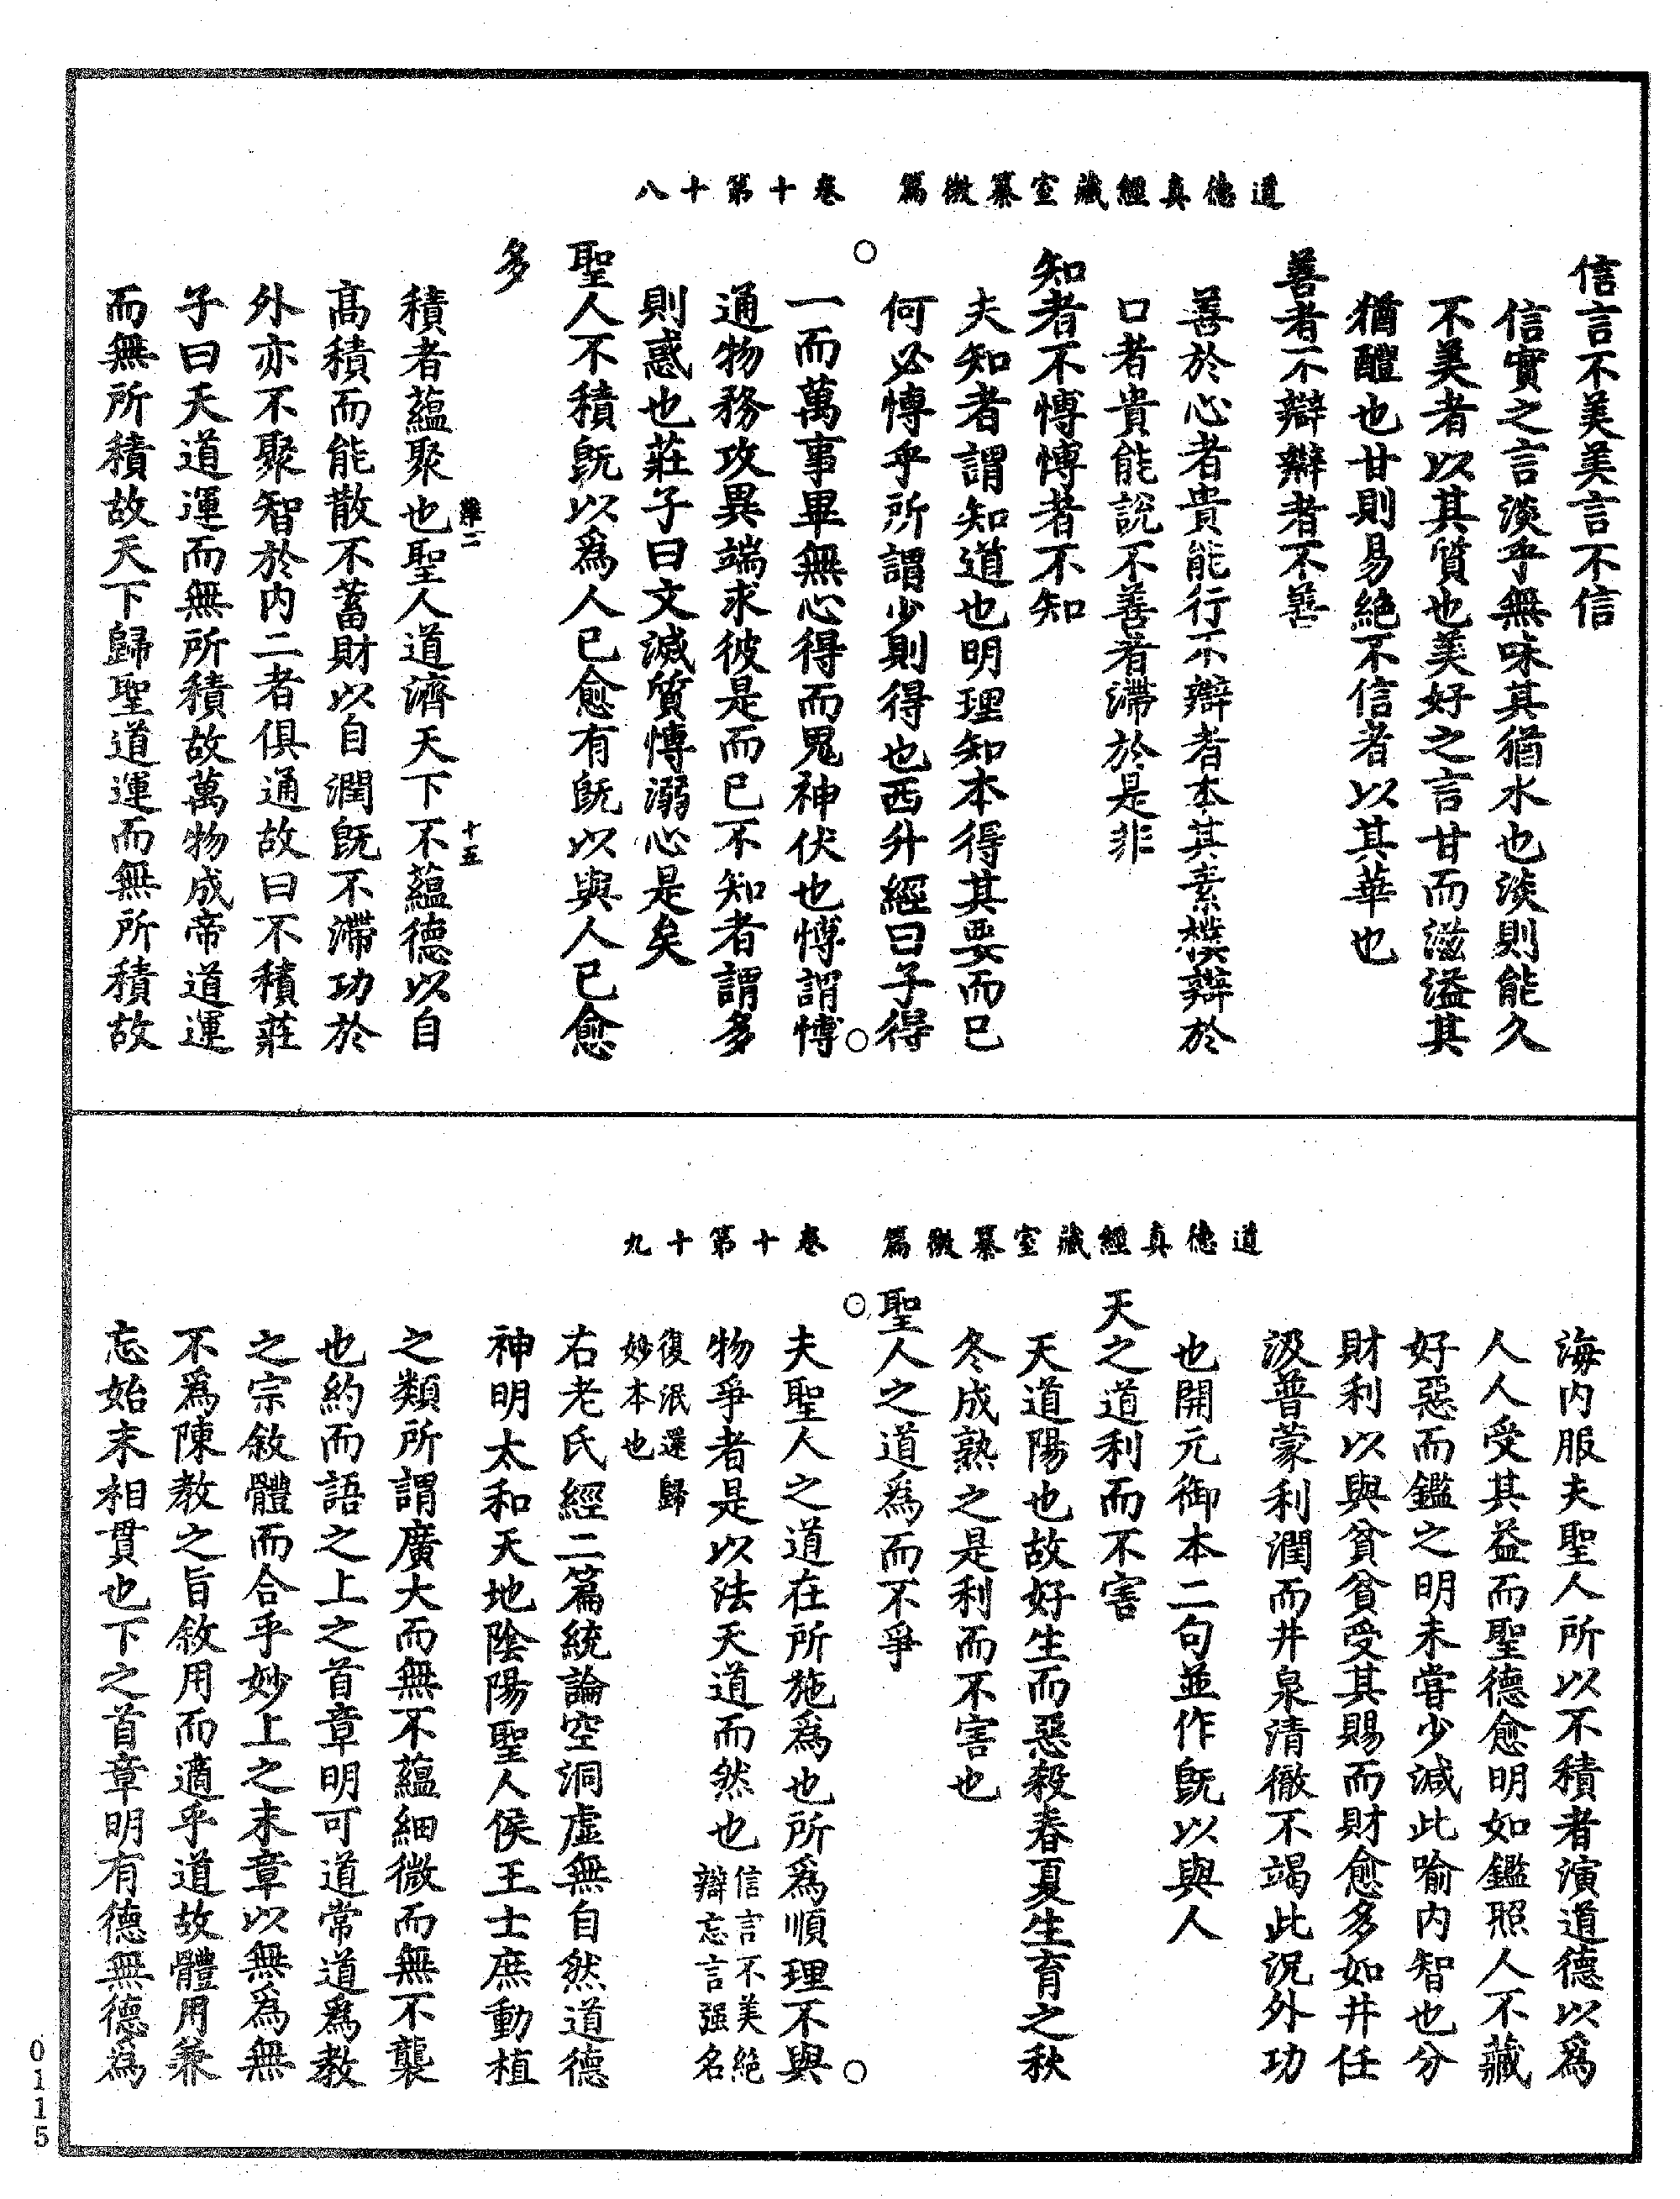 道德真經藏室纂微篇　卷十第十八
信言不美美言不信
信實之言淡乎無味其猶水也淡則能久
不美者以其質也美好之言甘而滋溢其
猶醴也甘則易絶不信者以其華也
善者不辯辯者不善
善於心者貴能行不辯者本其素樸辯於
口者貴能說不善者滯於是非
知者不愽愽者不知
夫知者謂知道也明理知本得其要而已
何必愽乎所謂少則得也西升經曰子得
一而萬事畢無心得而鬼神伏也愽謂愽
通物務攻異端求彼是而已不知者謂多
則惑也莊子曰文滅質愽溺心是矣
聖人不積旣以爲人已愈有旣以與人已愈
多
難二　十五
積者蘊聚也聖人道濟天下不蘊德以自
髙積而能散不蓄財以自潤旣不滯功於
外亦不聚智於内二者俱通故曰不積莊
子曰天道運而無所積故萬物成帝道運
而無所積故天下歸聖道運而無所積故
道德真經藏室纂微篇　卷十第十九
海内服夫聖人所以不積者演道德以爲
人人受其益而聖德愈明如鑑照人不藏
好惡而鑑之明未甞少減此喻内智也分
財利以與貧貧受其賜而財愈多如井任
汲普蒙利潤而井泉清徹不竭此況外功
也開元御本二句並作旣以與人
天之道利而不害
天道陽也故好生而惡殺春夏生育之秋
冬成熟之是利而不害也
聖人之道爲而不爭
夫聖人之道在所施爲也所爲順理不與
物爭者是以法天道而然也信言不美絶
辯忘言强名
復泯還歸
妙本也
右老氏經二篇統論空洞虛無自然道德
神明太和天地陰陽聖人侯王士庶動植
之類所謂廣大而無不蘊細微而無不襲
也約而語之上之首章明可道常道爲教
之宗敘體而合乎妙上之末章以無爲無
不爲陳教之旨敘用而適乎道故體用兼
忘始末相貫也下之首章明有德無德爲
0115